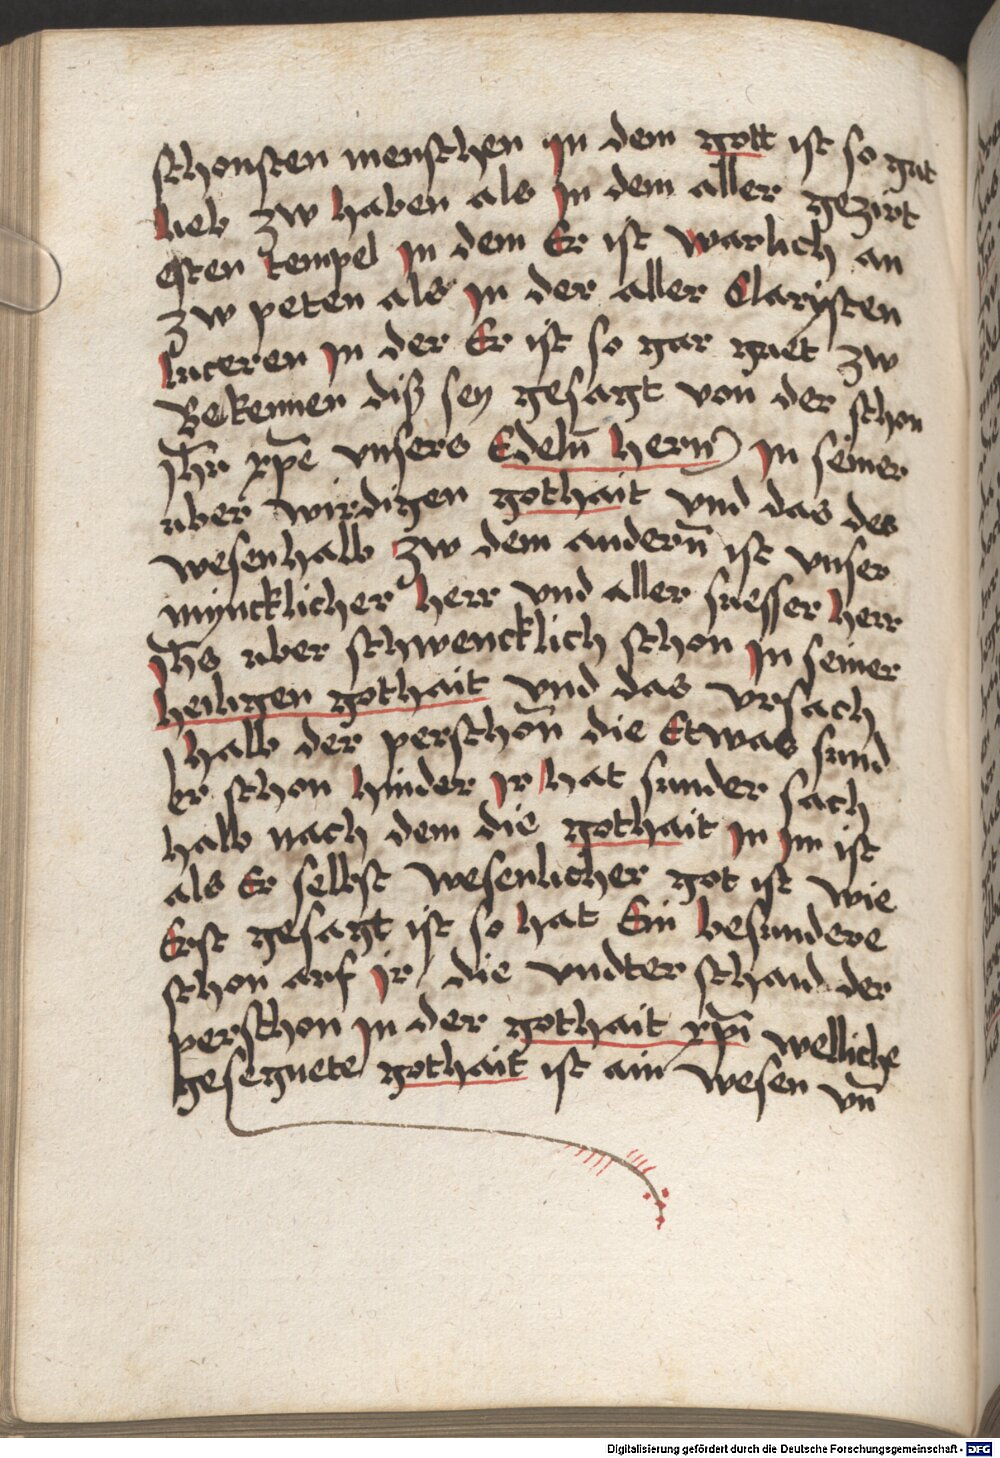 schonsten menschen jn dem gott ist so gut
lieb zw haben als jn dem aller gezirt
esten tempel jn dem Er ist warlich an
zw peten als jn der aller Clarysten
luceren jn der Er ist so gar guet zw
Bekennen diß sey gesagt von der schon
jh̅u xp̅e vnsers Edeln̅ hern̅ jn seiner
uber wirdigen gothait vnd das des
wesenhalb zw dem andern̅ ist vnser
mijncklicher herr vnd aller suesser herr
jh̅s uber schwencklich schon jn seiner
heiligen gothait vnd das vrsach
halb der perschon̅ die Etwas sund
er schon hinder jr hat sunder sach
halb nach dem die gothait jn jm ist
als Er selbst wesenlicher got ist wie
Erst gesagt ist so hat Ein besundere
schon auf jr die vndter schaid der
perschon jn der gothait xp̅i welliche
gesegnete gothait ist ain wesen vn̅
Digitalisierung gefördert durch die Deutsche Forschungsgemeinschaft - DFG